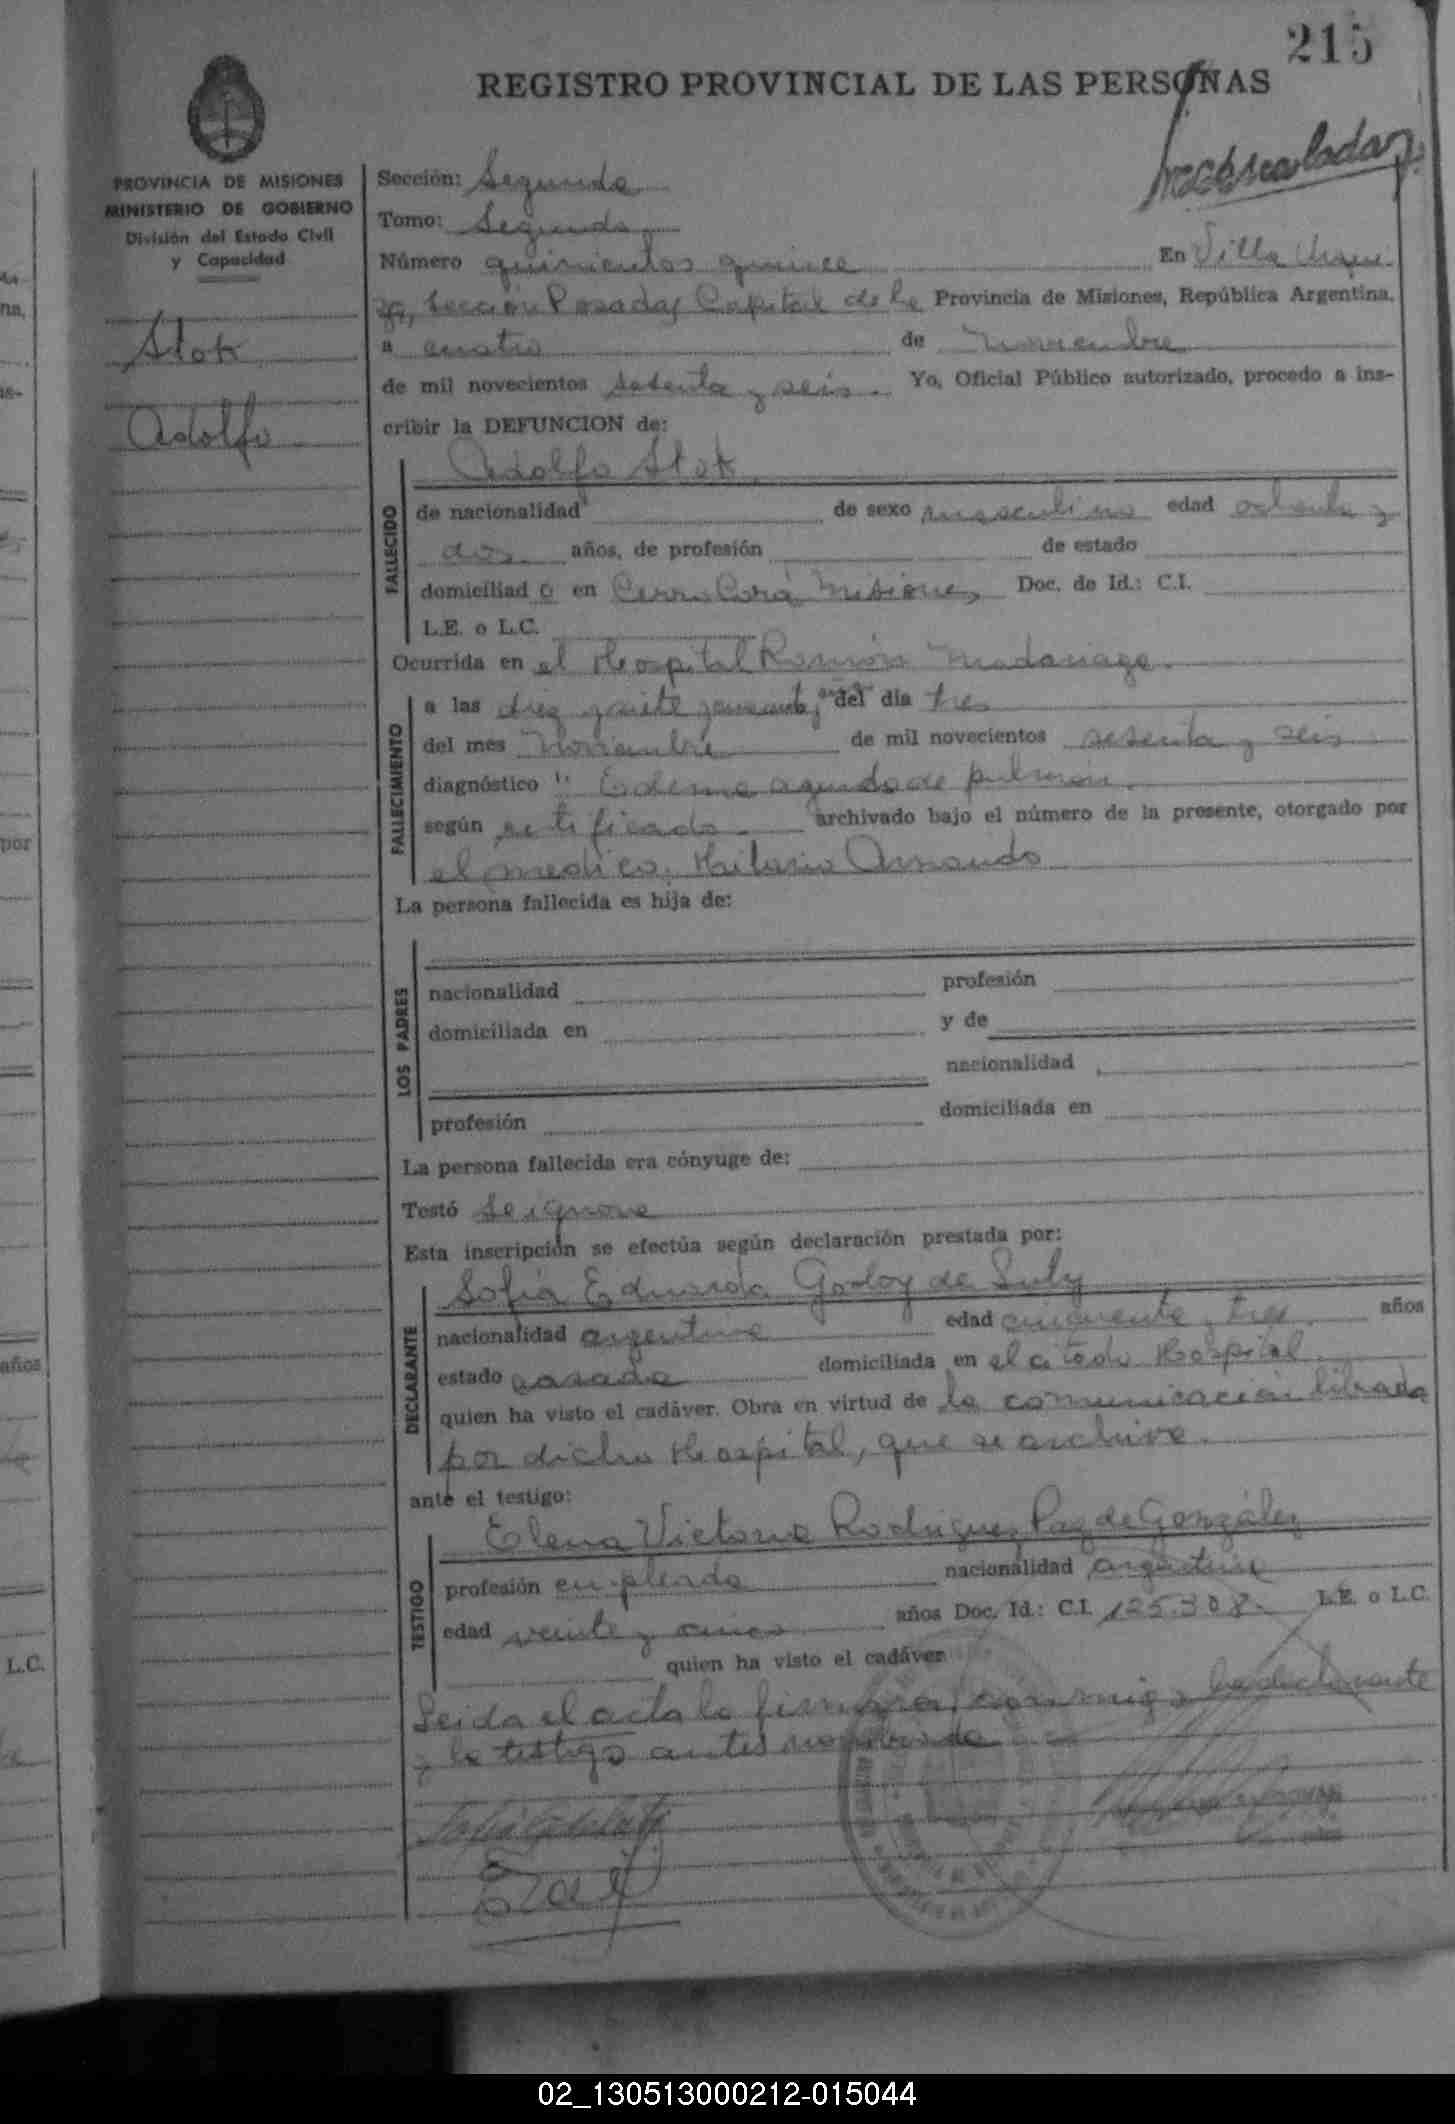 215
REGISTRO PROVINCIAL DE LAS PERSONAS
PROVINCIA DE MISIONES
MINISTERIO DE GOBIERNO
División del Estado Civil
y Capacidad
Stok
Adolfo
Sección: Segunda
Tomo: Segundo
Número quinientos quince En Villa Urqui-
za, Sección Posadas Capital de la Provincia de Misiones, República Argentina,
a cuatro de Noviembre
de mil novecientos setenta y seis. Yo, Oficial Público autorizado, procedo a ins-
cribir la DEFUNCION de:
Adolfo Stok
FALLECIDO
de nacionalidad de sexo masculino edad ochenta y
dos años, de profesión de estado
domiciliad o en Cerro Corá Misiones Doc. de Id.: C.I.
L.E. o L.C.
Ocurrida en el Hospital Ramón Madariaga.
FALLECIMIENTO
a las diez y siete y del día tres
del mes Noviembre de mil novecientos setenta y seis
diagnóstico Edema agudo de pulmón.
según certificado archivado bajo el número de la presente, otorgado por
el médico, Hilario Amando
La persona fallecida es hija de:
LOS PADRES
nacionalidad profesión
domiciliada en y de
nacionalidad
profesión domiciliada en
La persona fallecida era cónyuge de:
Testó se ignora
Esta inscripción se efectúa según declaración prestada por:
DECLARANTE
Sofía Eduarda Godoy de Suly
nacionalidad argentina edad cincuenta y tres años
estado casada domiciliada en el citado Hospital
quien ha visto el cadáver. Obra en virtud de la comunicación librada
por dicho Hospital, que se archiva.
ante el testigo:
TESTIGO
Elena Victoria Rodríguez Paz de González
profesión empleada nacionalidad argentina
edad veinte y cinco años Doc. Id.: C.I. 125.308. L.E. o L.C.
quien ha visto el cadáver
Leída el acta la firma conmigo la declarante
y la testigo antes nombrada
02_130513000212-015044